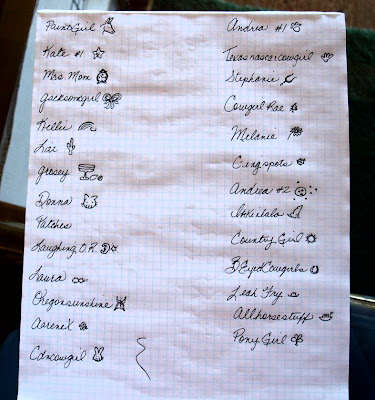 PaintGirl
Kate #1
Mrs Mom
Jacksonsgirl
Kellie
Lizi
grosey
Donna
Patches
Laughing O.R.
Laura
Oregonsunshine
Aarene X
Cdncowgirl
Andrea #1
Texasnascarcowgirl
Stephanie
Cowgirl Rae
Melanie
Cingspots
Andrea #2
Country Girl
BEyedCowgirls
Leah Fry
Allhorsestuff
Pony Girl